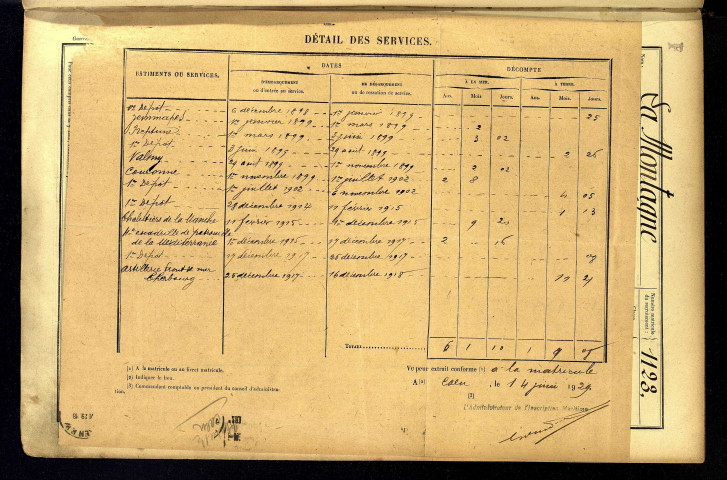 DÉTAIL DES SERVICES.
BÂTIMENTS OU SERVICES.
DATES
DÉCOMPTE
D'EMBARQUEMENT ou d'entrée au service.
DE DÉBARQUEMENT ou de cessation de service.
A LA MER.
A TERRE.
Ans. Mois Jours. Ans. Mois Jours.
1er Dépôt 6 décembre 1898 1er janvier 1899 25
Jemmapes 1er janvier 1899 1er mars 1899 2
Neptune 1er mars 1899 3 juin 1899 3 02
1er Dépôt 3 juin 1899 29 août 1899 2 26
Valmy 29 août 1899 1er novembre 1899 2 02
Couronne 1er novembre 1899 1er juillet 1902 2 8
1er Dépôt 1er juillet 1902 6 novembre 1902 4 05
1er Dépôt 29 décembre 1914 11 février 1915 1 13
Chalutiers de la Manche 11 février 1915 1er décembre 1915 9 20
de patrouille
de la Méditerranée 1er décembre 1915 17 décembre 1917 2 16
1er Dépôt 17 décembre 1917 25 décembre 1917
Artillerie front de mer
Cherbourg 25 décembre 1917 16 décembre 1918 11 21
TOTAUX 6 1 10 1 9
(1) A la matricule ou au livret matricule.
(2) Indiquer le lieu.
(3) Commandant comptable ou président du conseil d'administration.
Vu pour extrait conforme (1) à la matricule
A (2) Caen, le 14 juin 1929
(3)
L'Administrateur de l'Inscription Maritime
La Montagne
Numéro matricule du recrutement :
1123.